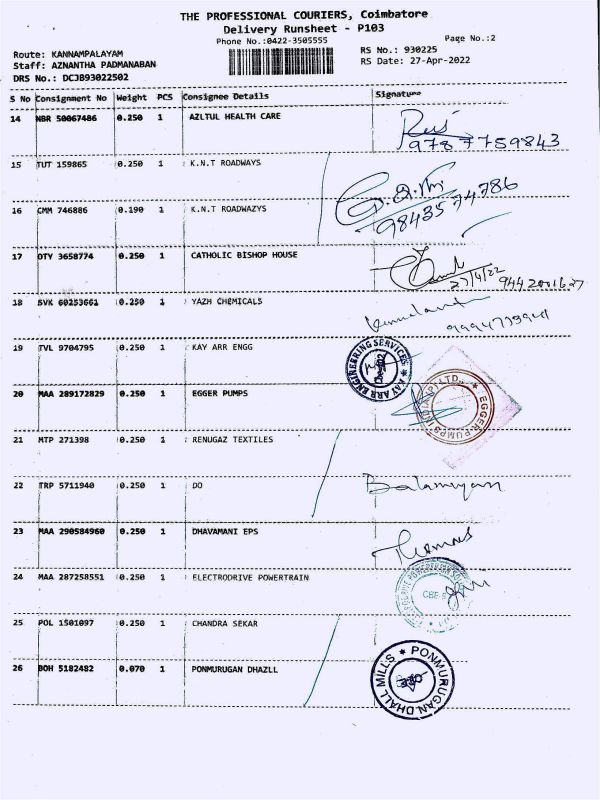 THE PROFESSIONAL COURIERS, Coimbatore
Delivery Runsheet - P103
Phone No.:0422-3505555
Page No.:2
Route: KANNAMPALAYAM
Staff: AZNANTHA PADMANABAN
DRS No.: DCJB93022502
RS No.: 930225
RS Date: 27-Apr-2022
S No Consignment No Weight PCS Consignee Details Signature
14 NBR 50067486 0.250 1 AZLTUL HEALTH CARE
9787759843
15 TUT 159865 0.250 1 K.N.T ROADWAYS
9843574786
16 CMM 746886 0.190 1 K.N.T ROADWAZYS
17 OTY 3658774 0.250 1 CATHOLIC BISHOP HOUSE
27/4/22 9442001627
18 SVK 60253661 0.250 1 YAZH CHEMICALS
19 TVL 9704795 0.250 1 KAY ARR ENGG
KAY ARR ENGINEERING SERVICES
20 MAA 289172829 0.250 1 EGGER PUMPS
EGGER PUMPS INDIA (P) LTD.
21 MTP 271398 0.250 1 RENUGAZ TEXTILES
22 TRP 5711940 0.250 1 DO
Balamurugan
23 MAA 290584960 0.250 1 DHAVAMANI EPS
Thomas
24 MAA 287258551 0.250 1 ELECTRODRIVE POWERTRAIN
25 POL 1501097 0.250 1 CHANDRA SEKAR
26 BOH 5182482 0.070 1 PONMURUGAN DHAZLL
PONMURUGAN DHALL MILLS